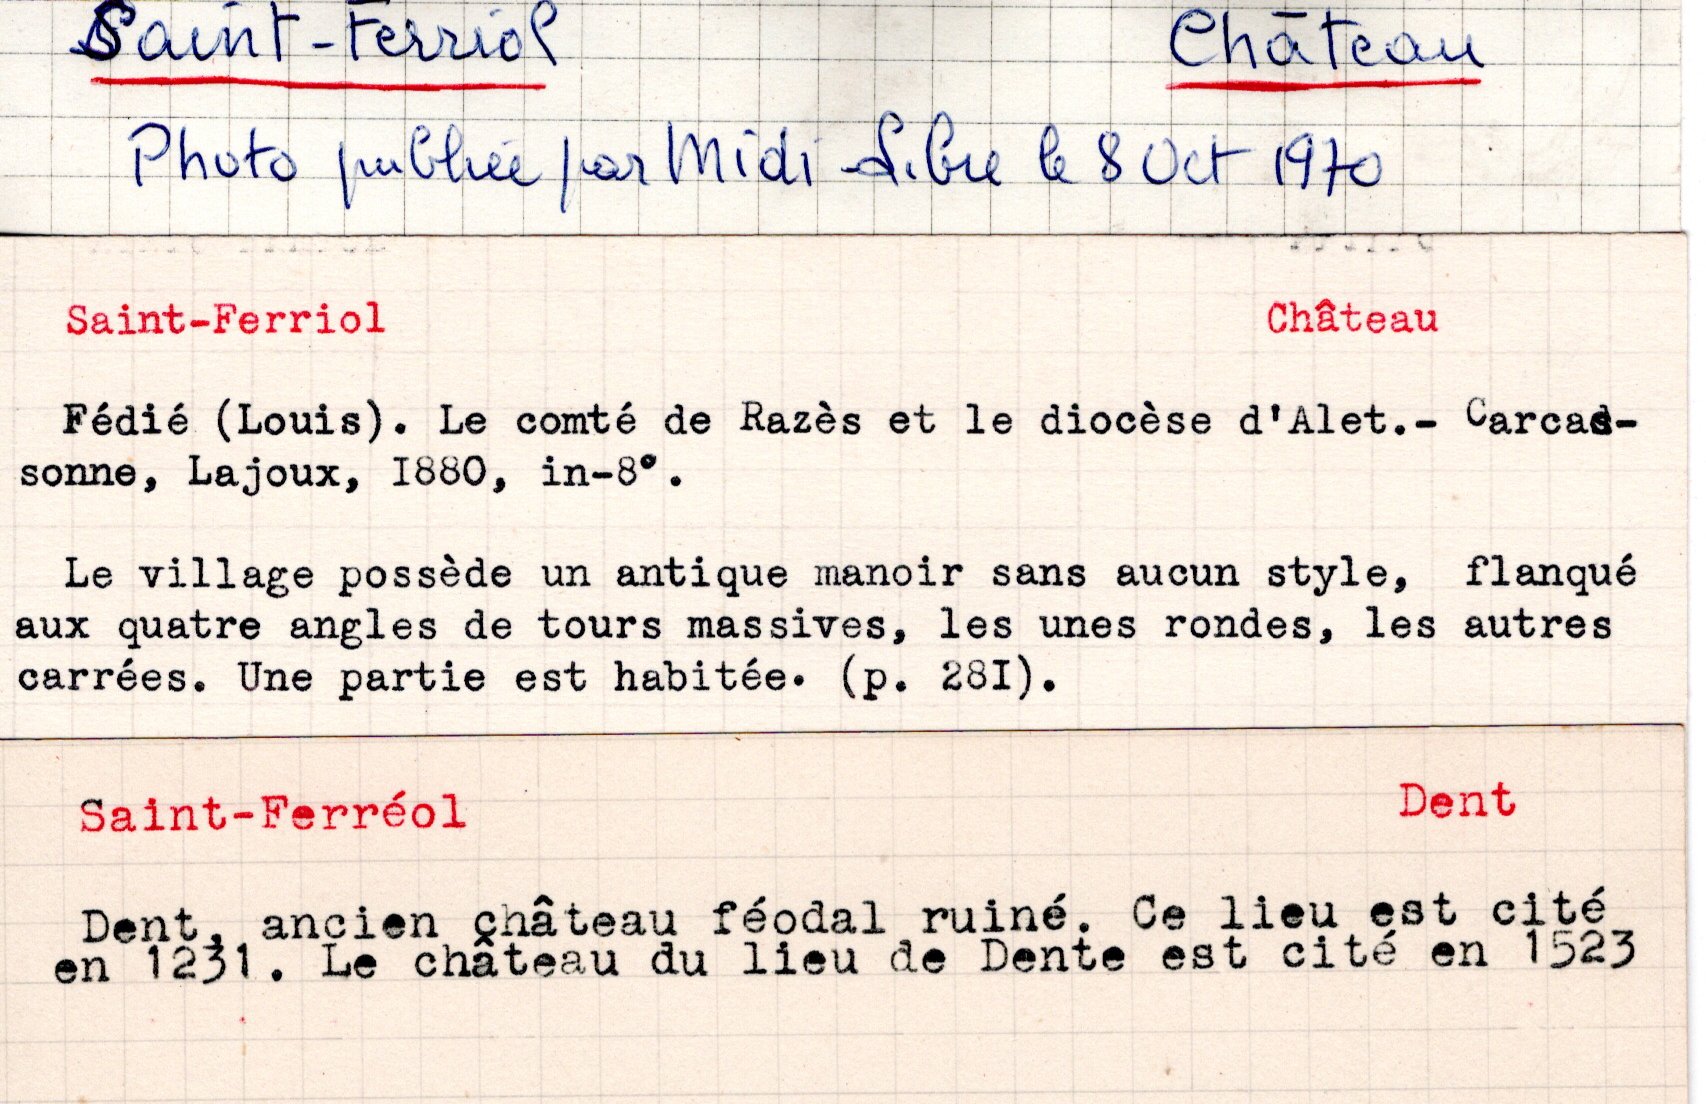 Saint-Ferriol Château
Photo publiée par Midi-Libre le 8 Oct 1970
Saint-Ferriol Château
Fédié (Louis). Le comté de Razès et le diocèse d'Alet.- Carcas-
sonne, Lajoux, I880, in-8°.
Le village possède un antique manoir sans aucun style, flanqué
aux quatre angles de tours massives, les unes rondes, les autres
carrées. Une partie est habitée. (p. 28I).
Saint-Ferréol Dent
Dent, ancien château féodal ruiné. Ce lieu est cité
en 1231. Le château du lieu de Dente est cité en 1523